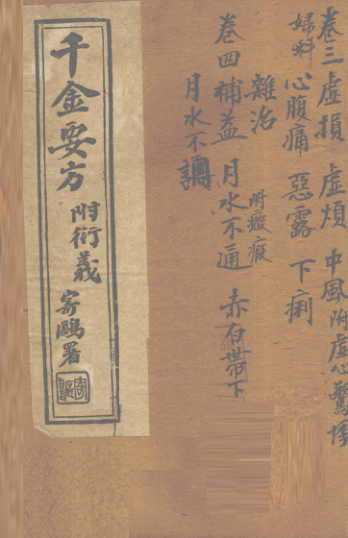 卷三 虛損 虛煩 中風 附虛心驚悸
婦科 心腹痛 惡露 下痢
雜治 附癥瘕
卷四 補益 月水不通 赤白帶下
月水不調
千金要方 附衍義 寄鷗署